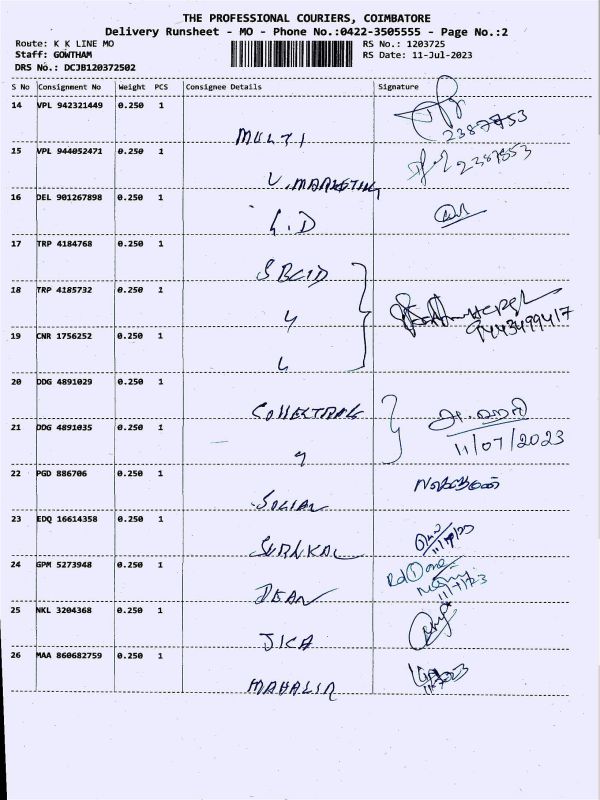 THE PROFESSIONAL COURIERS, COIMBATORE
Delivery Runsheet - MO - Phone No.:0422-3505555 - Page No.:2
Route: K K LINE MO RS No.: 1203725
Staff: GOWTHAM RS Date: 11-Jul-2023
DRS No.: DCJB120372502
S No Consignment No Weight PCS Consignee Details Signature
14 VPL 942321449 0.250 1
MULTI 2387853
15 VPL 944052471 0.250 1 2387853
V.MARKETING
16 DEL 901267898 0.250 1
L.D
17 TRP 4184768 0.250 1
SBCID
18 TRP 4185732 0.250 1
4 9443499417
19 CNR 1756252 0.250 1
20 DDG 4891029 0.250 1
21 DDG 4891035 0.250 1
11/07/2023
22 PGD 886706 0.250 1
SOCIAL
23 EDQ 16614358 0.250 1
24 GPM 5273948 0.250 1
DEAN
25 NKL 3204368 0.250 1
JICA
26 MAA 860682759 0.250 1
MAHALIR